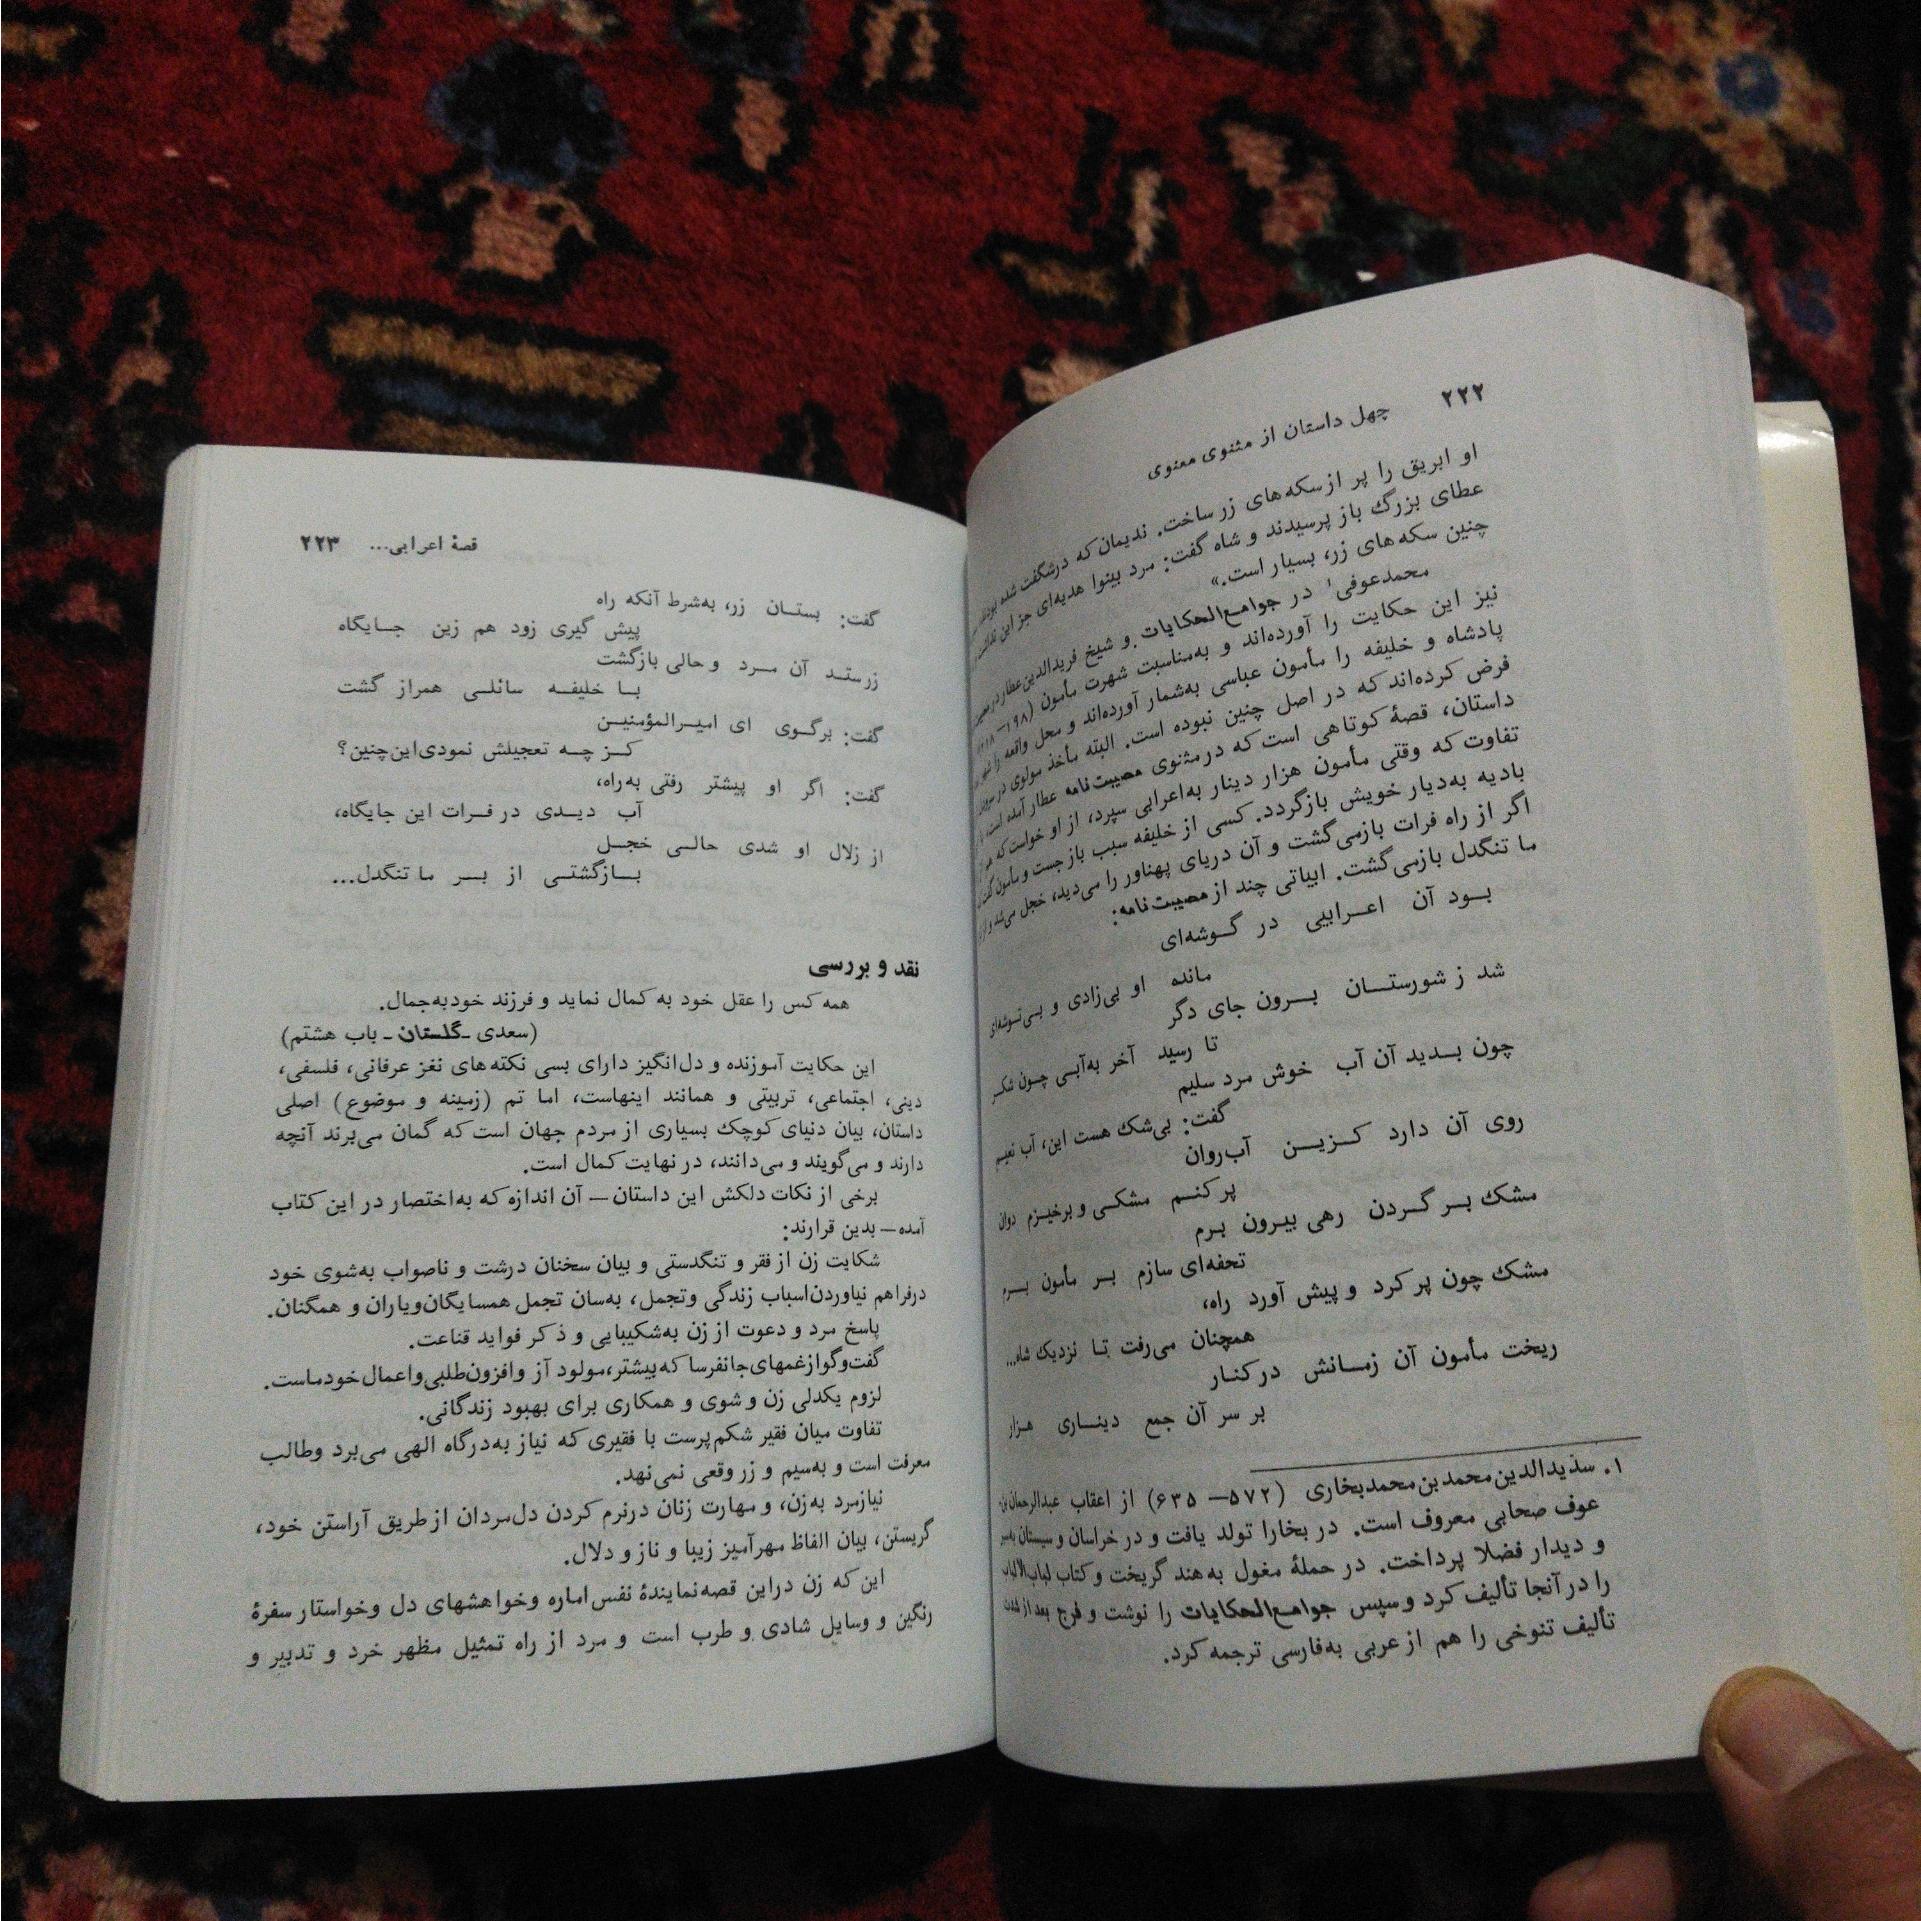 ۲۲۲ چهل داستان از مثنوی معنوی
او ابریق را پر از سکه‌های زر ساخت. ندیمان که درشگفت شده
عطای بزرگ باز پرسیدند و شاه گفت: مرد بینوا هدیه‌ای جز این
چنین سکه‌های زر، بسیار است.»
محمدعوفی۱ در جوامع‌الحکایات و شیخ فریدالدین عطار در
نیز این حکایت را آورده‌اند و به‌مناسبت شهرت مأمون (۱۹۸–
پادشاه و خلیفه را مأمون عباسی به‌شمار آورده‌اند و محل واقعه را
فرض کرده‌اند که در اصل چنین نبوده است. البته مأخذ مولوی در
داستان، قصهٔ کوتاهی است که در مثنوی مصیبت‌نامه عطار آمده است،
تفاوت که وقتی مأمون هزار دینار به‌اعرابی سپرد، از او خواست که
بادیه به‌دیار خویش بازگردد. کسی از خلیفه سبب باز جست و مأمون
اگر از راه فرات بازمی‌گشت و آن دریای پهناور را می‌دید، خجل می‌شد و
ما تنگدل بازمی‌گشت. ابیاتی چند از مصیبت‌نامه:
بود آن اعرابیی در گوشه‌ای
مانده او بی‌زادی و بی‌توشه‌ای
شد ز شورستان برون جای دگر
تا رسید آخر به‌آبی چون شکر
چون بدید آن آب خوش مرد سلیم
گفت: بی‌شک هست این، آب نعیم
روی آن دارد کزین آب‌روان
پر کنم مشکی و برخیزم دوان
مشک بر گردن رهی بیرون برم
تحفه‌ای سازم بر مأمون برم
مشک چون پر کرد و پیش آورد راه،
همچنان می‌رفت تا نزدیک شاه...
ریخت مأمون آن زمانش در کنار
بر سر آن جمع دیناری هزار
۱. سدیدالدین محمد بن محمد بخاری (۵۷۲–۶۳۵) از اعقاب عبدالرحمان بن
عوف صحابی معروف است. در بخارا تولد یافت و در خراسان و سیستان
و دیدار فضلا پرداخت. در حملهٔ مغول به هند گریخت و کتاب لباب‌الالباب
را در آنجا تألیف کرد و سپس جوامع‌الحکایات را نوشت و فرج بعد از شدت
تألیف تنوخی را هم از عربی به‌فارسی ترجمه کرد.
قصهٔ اعرابی... ۲۲۳
گفت: بستان زر، به‌شرط آنکه راه
پیش گیری زود هم زین جایگاه
زر ستد آن مرد و حالی بازگشت
با خلیفه سائلی همراز گشت
گفت: برگوی ای امیرالمؤمنین
کز چه تعجیلش نمودی این‌چنین؟
گفت: اگر او پیشتر رفتی به‌راه،
آب دیدی در فرات این جایگاه،
از زلال او شدی حالی خجل
بازگشتی از بر ما تنگدل...
نقد و بررسی
همه کس را عقل خود به کمال نماید و فرزند خود به‌جمال.
(سعدی ـ گلستان ـ باب هشتم)
این حکایت آموزنده و دل‌انگیز دارای بسی نکته‌های نغز عرفانی، فلسفی،
دینی، اجتماعی، تربیتی و همانند اینهاست، اما تم (زمینه و موضوع) اصلی
داستان، بیان دنیای کوچک بسیاری از مردم جهان است که گمان می‌برند آنچه
دارند و می‌گویند و می‌دانند، در نهایت کمال است.
برخی از نکات دلکش این داستان – آن اندازه که به‌اختصار در این کتاب
آمده – بدین قرارند:
شکایت زن از فقر و تنگدستی و بیان سخنان درشت و ناصواب به‌شوی خود
درفراهم نیاوردن‌اسباب زندگی وتجمل، به‌سان تجمل همسایگان‌ویاران و همگنان.
پاسخ مرد و دعوت از زن به‌شکیبایی و ذکر فواید قناعت.
گفت‌وگو ازغمهای‌جانفرسا که‌بیشتر،مولود آز وافزون‌طلبی‌واعمال‌خودماست.
لزوم یکدلی زن و شوی و همکاری برای بهبود زندگانی.
تفاوت میان فقیر شکم‌پرست با فقیری که نیاز به‌درگاه الهی می‌برد وطالب
معرفت است و به‌سیم و زر وقعی نمی‌نهد.
نیازمرد به‌زن، و مهارت زنان درنرم کردن دل‌مردان ازطریق آراستن خود،
گریستن، بیان الفاظ مهرآمیز زیبا و ناز و دلال.
این که زن دراین قصه‌نمایندهٔ نفس‌اماره وخواهشهای دل وخواستار سفرهٔ
رنگین و وسایل شادی و طرب است و مرد از راه تمثیل مظهر خرد و تدبیر و